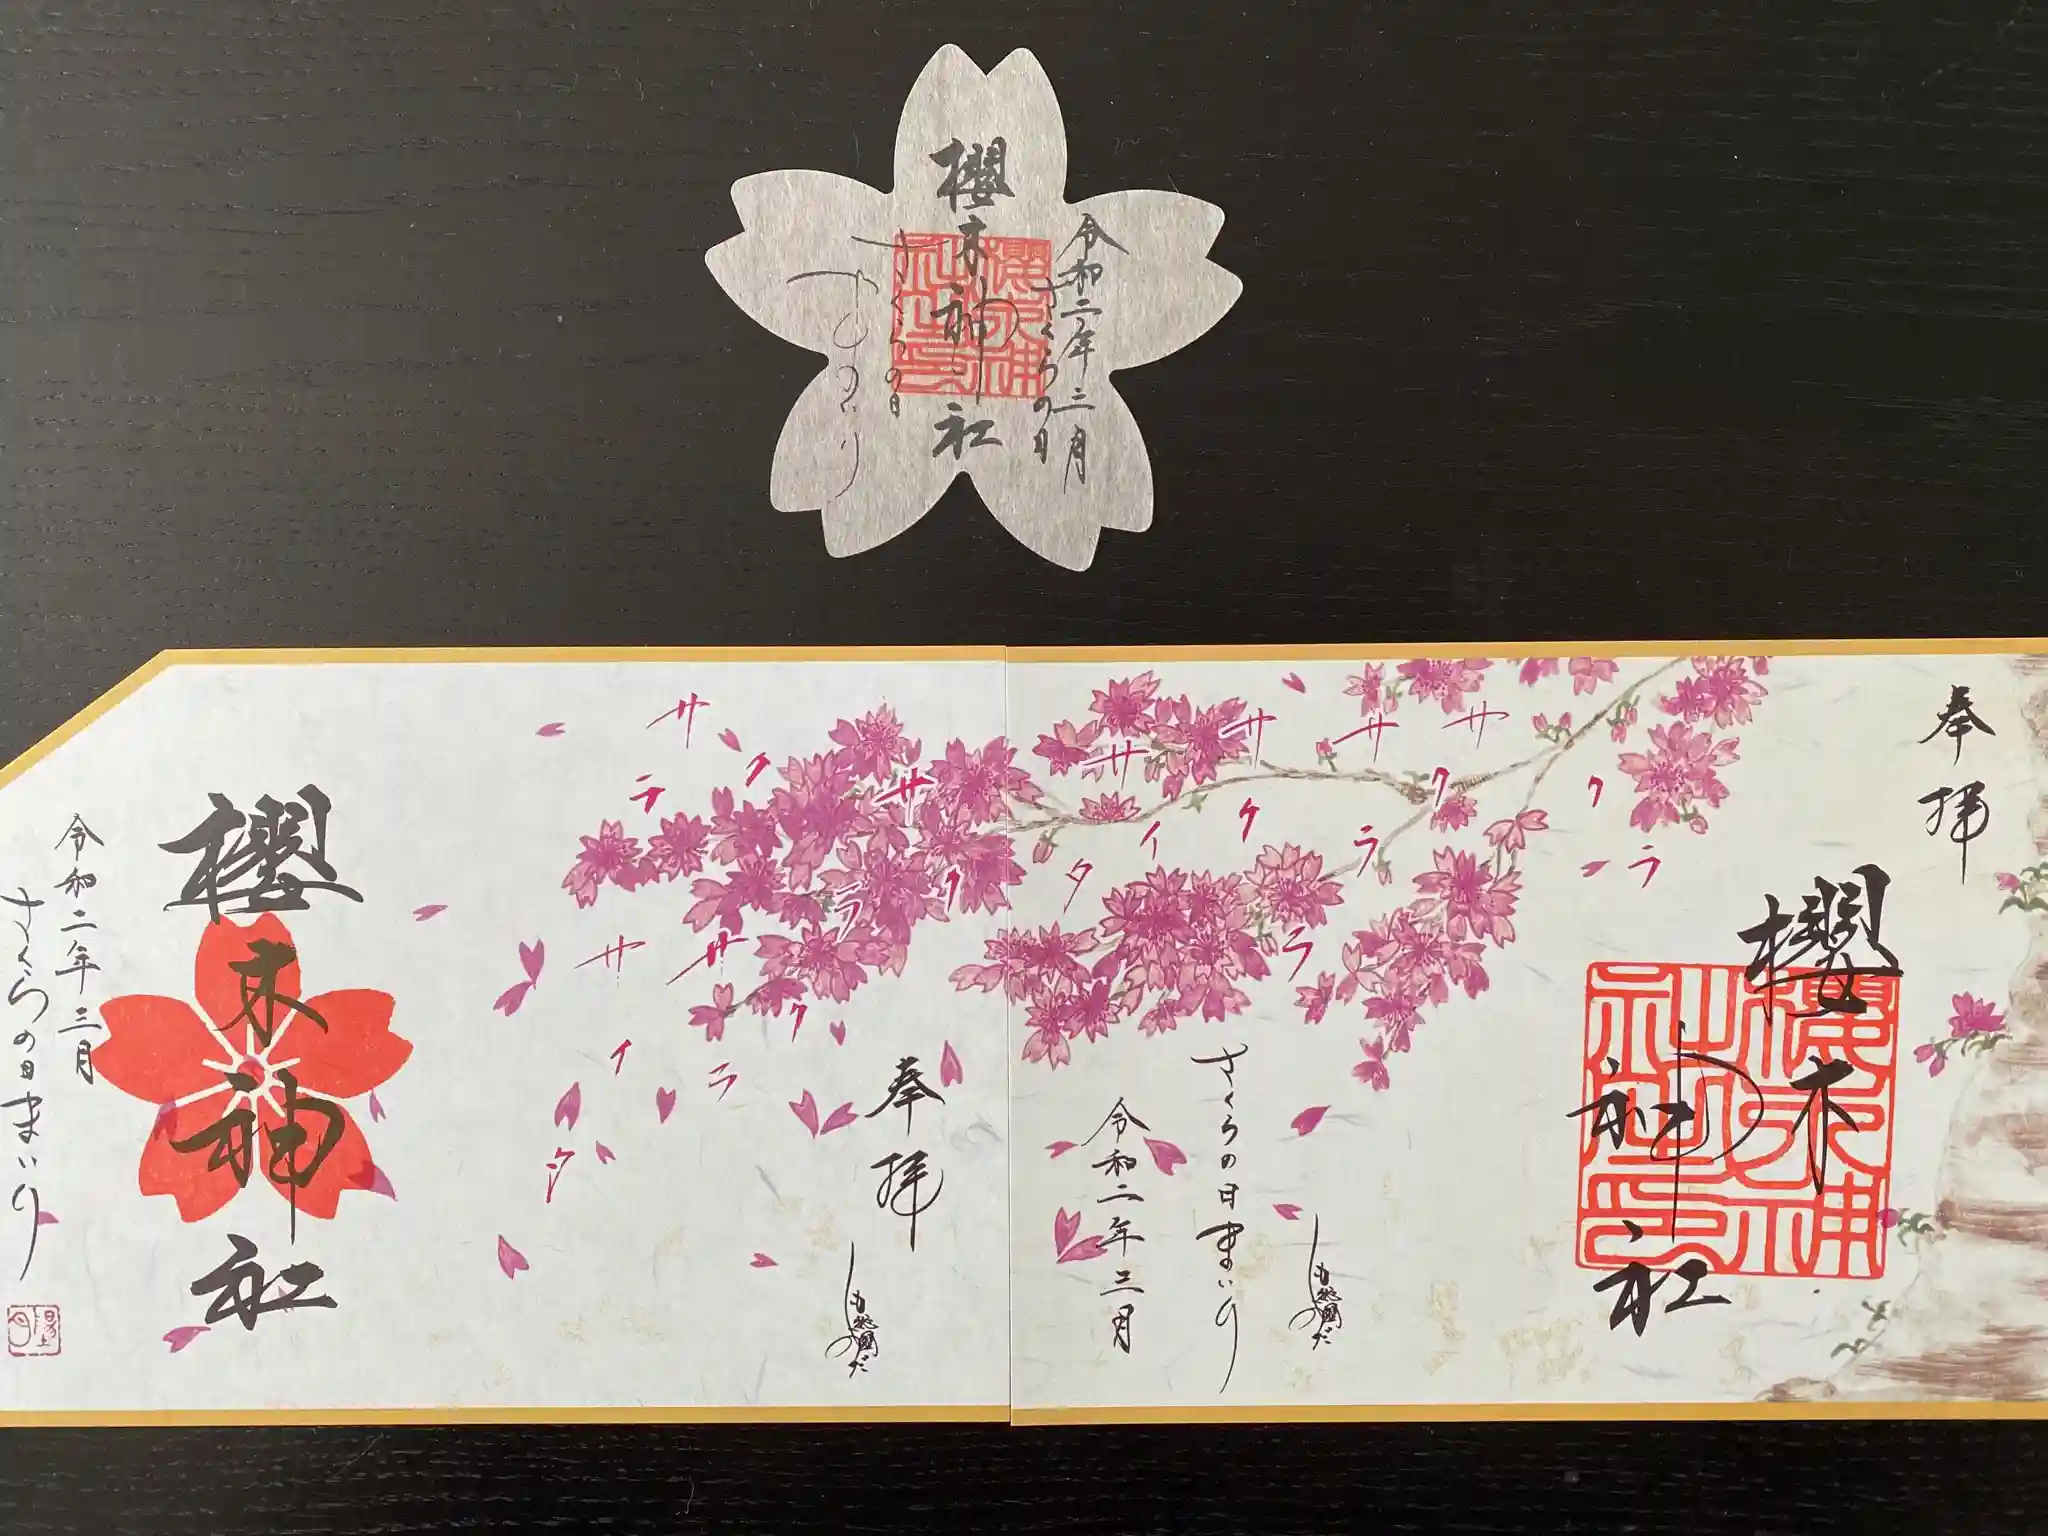 櫻木神社
令和二年三月
さくらの日
さくらの日
まいり
櫻木神社印
奉拝
櫻木神社
櫻木神社印
さくらの日まいり
令和二年三月
サクラ
サクラ
サクラ
サクラ
サイタ
奉拝
櫻木神社
令和二年三月
さくらの日まいり
サクラ
サクラ
サクラ
サイタ